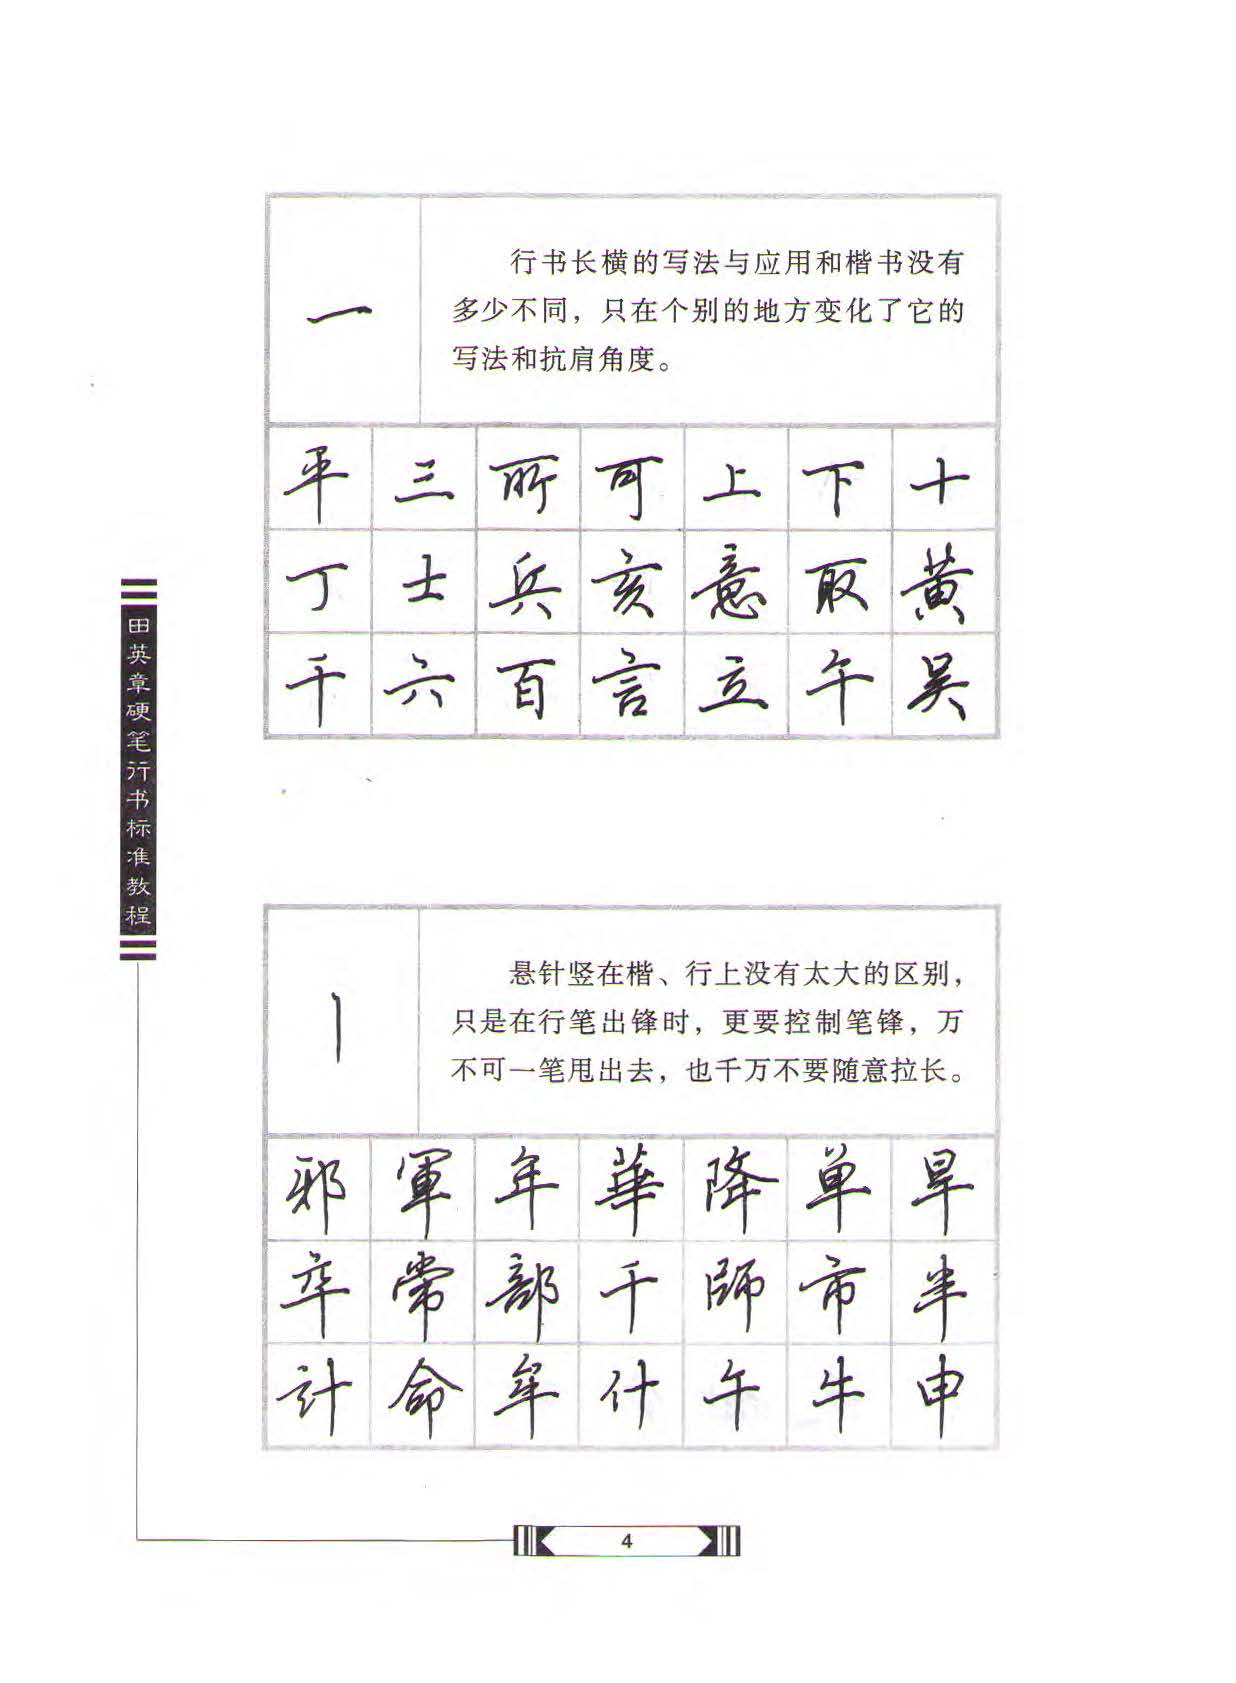 一
行书长横的写法与应用和楷书没有
多少不同，只在个别的地方变化了它的
写法和抗肩角度。
平 三 所 可 上 下 十
丁 士 兵 亥 意 取 黄
千 六 百 言 立 午 吴
田英章硬笔行书标准教程
丨
悬针竖在楷、行上没有太大的区别，
只是在行笔出锋时，更要控制笔锋，万
不可一笔甩出去，也千万不要随意拉长。
邪 軍 年 華 降 单 旱
卒 常 部 千 師 市 半
計 命 牟 什 午 牛 申
4